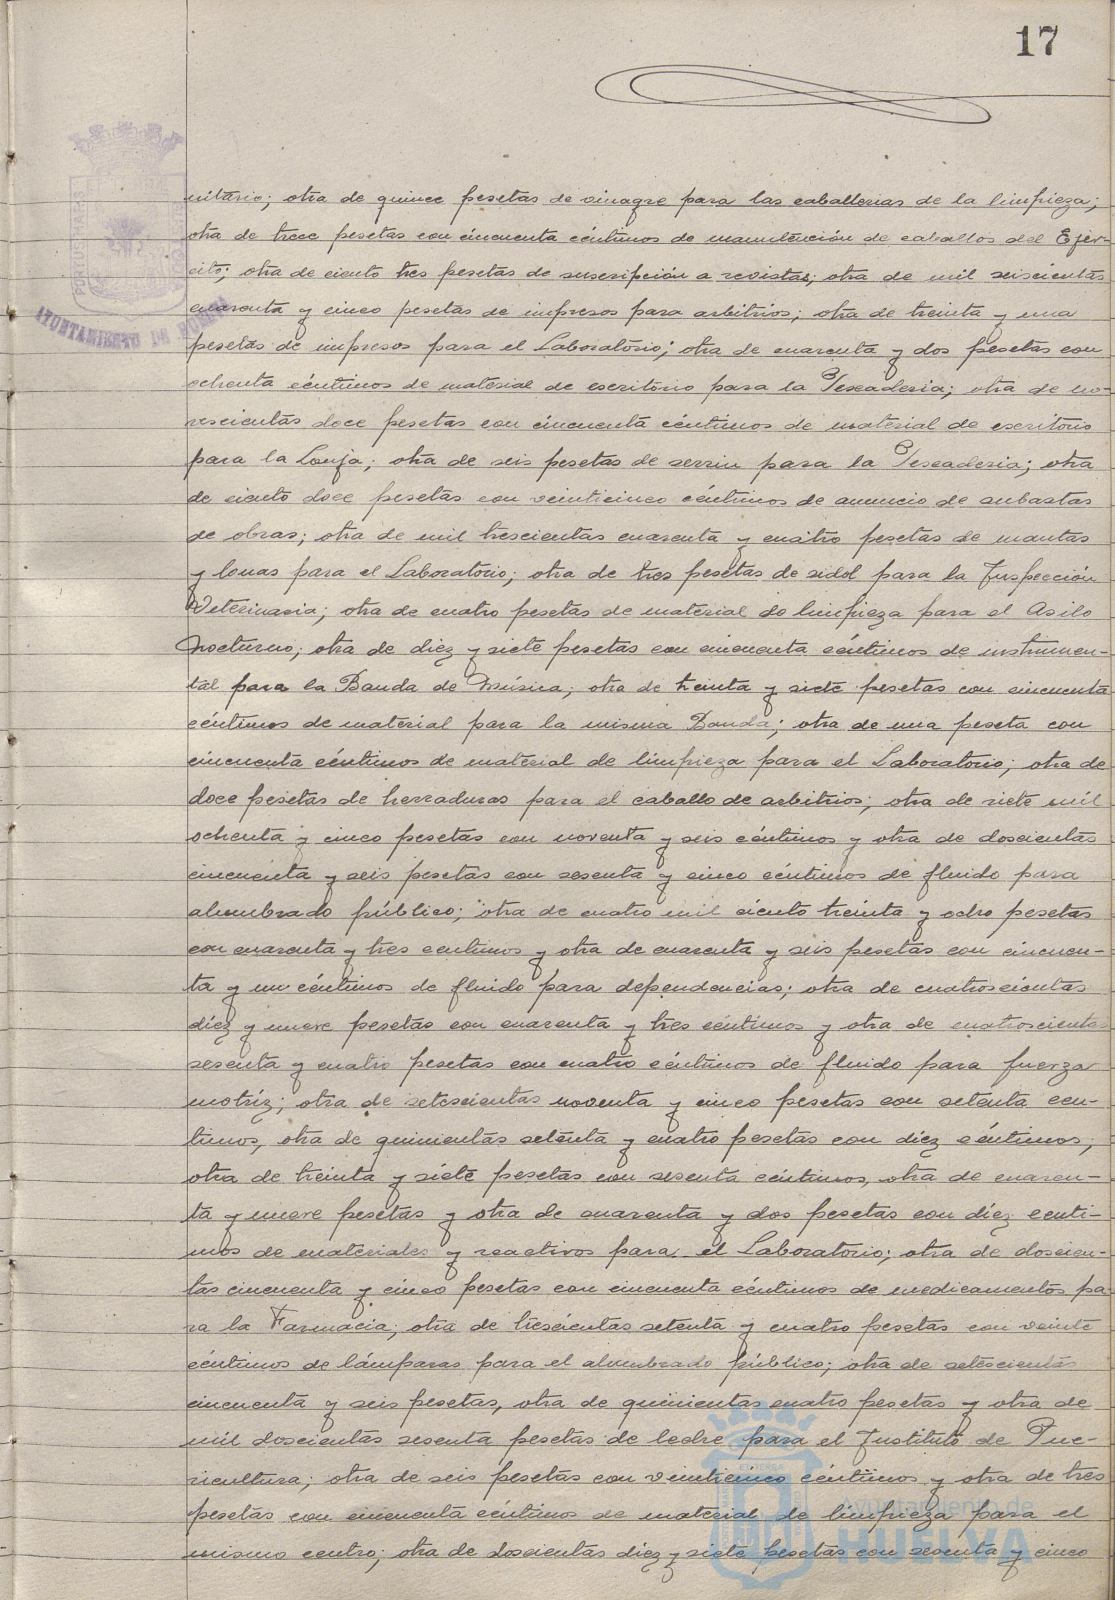 17
nitario; otra de quince pesetas de vinagre para las caballerias de la limpieza;
otra de trece pesetas con cincuenta céntimos de manutención de caballos del Ejér-
cito; otra de ciento tres pesetas de suscripción a revistas; otra de mil seiscientas
cuarenta y cinco pesetas de impresos para arbitrios; otra de treinta y una
pesetas de impresos para el Laboratorio; otra de cuarenta y dos pesetas con
ochenta céntimos de material de escritorio para la Pescaderia; otra de no-
vescientas doce pesetas con cincuenta céntimos de material de escritorio
para la Lonja; otra de seis pesetas de serrin para la Pescaderia; otra
de ciento doce pesetas con veinticinco céntimos de anuncio de subastas
de obras; otra de mil trescientas cuarenta y cuatro pesetas de mantas
y lonas para el Laboratorio; otra de tres pesetas de sidol para la Inspección
Veterinaria; otra de cuatro pesetas de material de limpieza para el Asilo
Nocturno; otra de diez y siete pesetas con cincuenta céntimos de instrumen-
tal para la Banda de Música; otra de treinta y siete pesetas con cincuenta
céntimos de material para la misma Banda; otra de una peseta con
cincuenta céntimos de material de limpieza para el Laboratorio; otra de
doce pesetas de herraduras para el caballo de arbitrios; otra de siete mil
ochenta y cinco pesetas con noventa y seis céntimos y otra de doscientas
cincuenta y seis pesetas con sesenta y cinco céntimos de fluido para
alumbrado público; otra de cuatro mil ciento treinta y ocho pesetas
con cuarenta y tres centimos y otra de cuarenta y seis pesetas con cincuen-
ta y un céntimos de fluido para dependencias; otra de cuatroscientas
diez y nueve pesetas con cuarenta y tres céntimos y otra de cuatroscientas
sesenta y cuatro pesetas con cuatro céntimos de fluido para fuerza
motriz; otra de setescientas noventa y cinco pesetas con setenta cen-
timos, otra de quinientas setenta y cuatro pesetas con diez céntimos;
otra de treinta y siete pesetas con sesenta céntimos, otra de cuaren-
ta y nueve pesetas y otra de cuarenta y dos pesetas con diez centi-
mos de materiales y reactivos para el Laboratorio; otra de doscien-
tas cincuenta y cinco pesetas con cincuenta céntimos de medicamentos pa-
ra la Farmacia; otra de trescientas setenta y cuatro pesetas con veinte
céntimos de lámparas para el alumbrado público; otra de setescientas
cincuenta y seis pesetas, otra de quinientas cuatro pesetas y otra de
mil doscientas sesenta pesetas de leche para el Instituto de Pue-
ricultura; otra de seis pesetas con veinticinco céntimos y otra de tres
pesetas con cincuenta céntimos de material de limpieza para el
mismo centro; otra de doscientas diez y siete pesetas con sesenta y cinco
AYUNTAMIENTO DE HUELVA
Ayuntamiento de
HUELVA